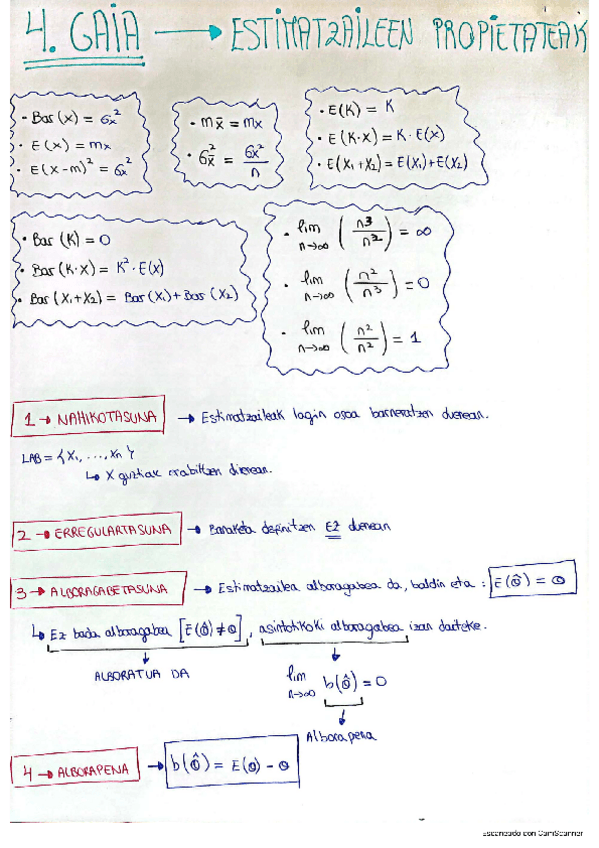 4. GAIA → ESTIMATZAILEEN PROPIETATEAK
• Bar (x) = σx²
• E(x) = mx
• E(x-m)² = σx²
• mx̄ = mx
• σx̄² = σx²/n
• E(K) = K
• E(K·x) = K·E(x)
• E(X1+X2) = E(X1)+E(X2)
• Bar (K) = 0
• Bar (K·X) = K²·E(x)
• Bar (X1+X2) = Bar(X1)+Bar(X2)
• lim n→∞ (n³/n²) = ∞
• lim n→∞ (n²/n³) = 0
• lim n→∞ (n²/n²) = 1
1 → NAHIKOTASUNA → Estimatzaileak lagin osoa barneratzen duenean.
LAB = {X1, ..., Xn}
↳ X guztiak erabiltzen direnean.
2 → ERREGULARTASUNA → Banaketa definitzen EZ duenean
3 → ALBORAGABETASUNA → Estimatzailea alboragabea da, baldin eta: E(θ̂) = θ
↳ Ez bada alboragabea [E(θ̂) ≠ θ], asintotikoki alboragabea izan daiteke.
ALBORATUA DA
lim n→∞ b(θ̂) = 0
Alborapena
4 → ALBORAPENA → b(θ̂) = E(θ) - θ
Escaneado con CamScanner